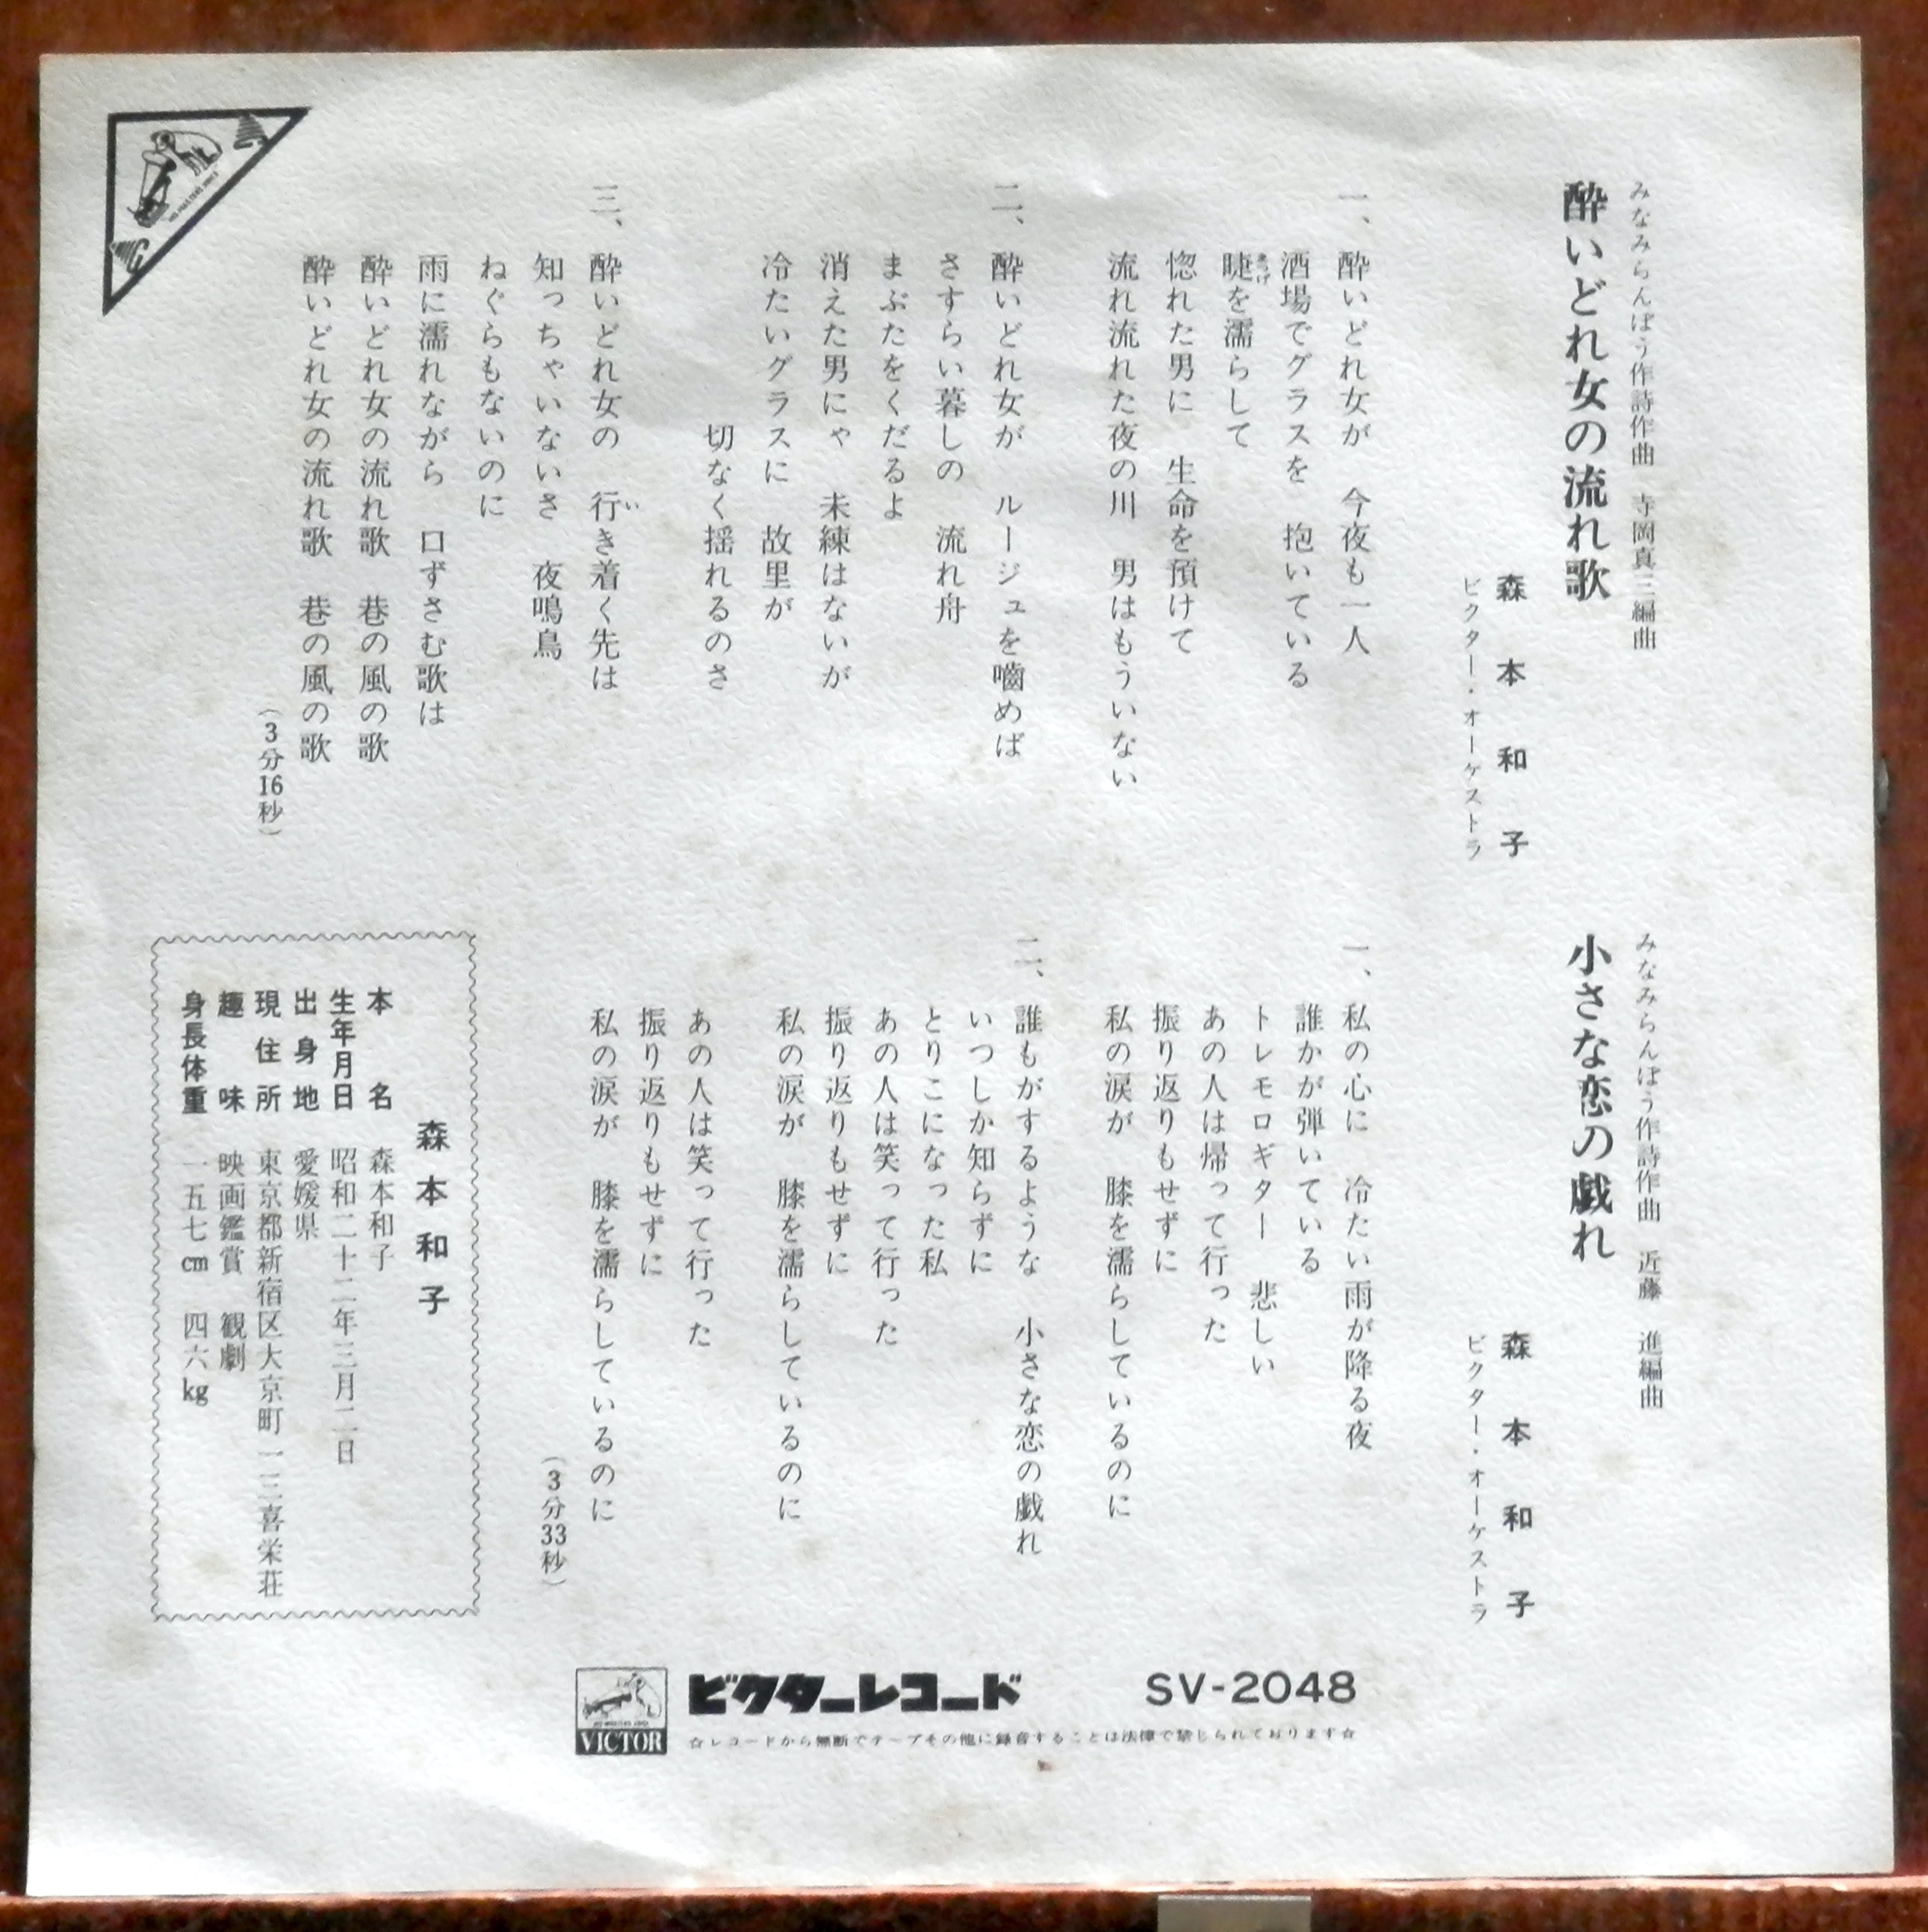 みなみらんぼう作詩作曲　寺岡真三編曲
酔いどれ女の流れ歌
森本和子
ビクター・オーケストラ
一、酔いどれ女が　今夜も一人
酒場でグラスを　抱いている
睫を濡らして
まつげ
惚れた男に　生命を預けて
流れ流れた夜の川　男はもういない
二、酔いどれ女が　ルージュを嚙めば
さすらい暮しの　流れ舟
まぶたをくだるよ
消えた男にゃ　未練はないが
冷たいグラスに　故里が
切なく揺れるのさ
三、酔いどれ女の　行き着く先は
い
知っちゃいないさ　夜鳴鳥
ねぐらもないのに
雨に濡れながら　口ずさむ歌は
酔いどれ女の流れ歌　巷の風の歌
酔いどれ女の流れ歌　巷の風の歌
（3分16秒）
みなみらんぼう作詩作曲　近藤　進編曲
小さな恋の戯れ
森本和子
ビクター・オーケストラ
一、私の心に　冷たい雨が降る夜
誰かが弾いている
トレモロギター　悲しい
あの人は帰って行った
振り返りもせずに
私の涙が　膝を濡らしているのに
二、誰もがするような　小さな恋の戯れ
いつしか知らずに
とりこになった私
あの人は笑って行った
振り返りもせずに
私の涙が　膝を濡らしているのに
あの人は笑って行った
振り返りもせずに
私の涙が　膝を濡らしているのに
（3分33秒）
森本和子
本名　森本和子
生年月日　昭和二十二年三月二日
出身地　愛媛県
現住所　東京都新宿区大京町一三喜栄荘
趣味　映画鑑賞　観劇
身長体重　一五七cm　四六kg
VICTOR
ビクターレコード　SV-2048
☆レコードから無断でテープその他に録音することは法律で禁じられております☆